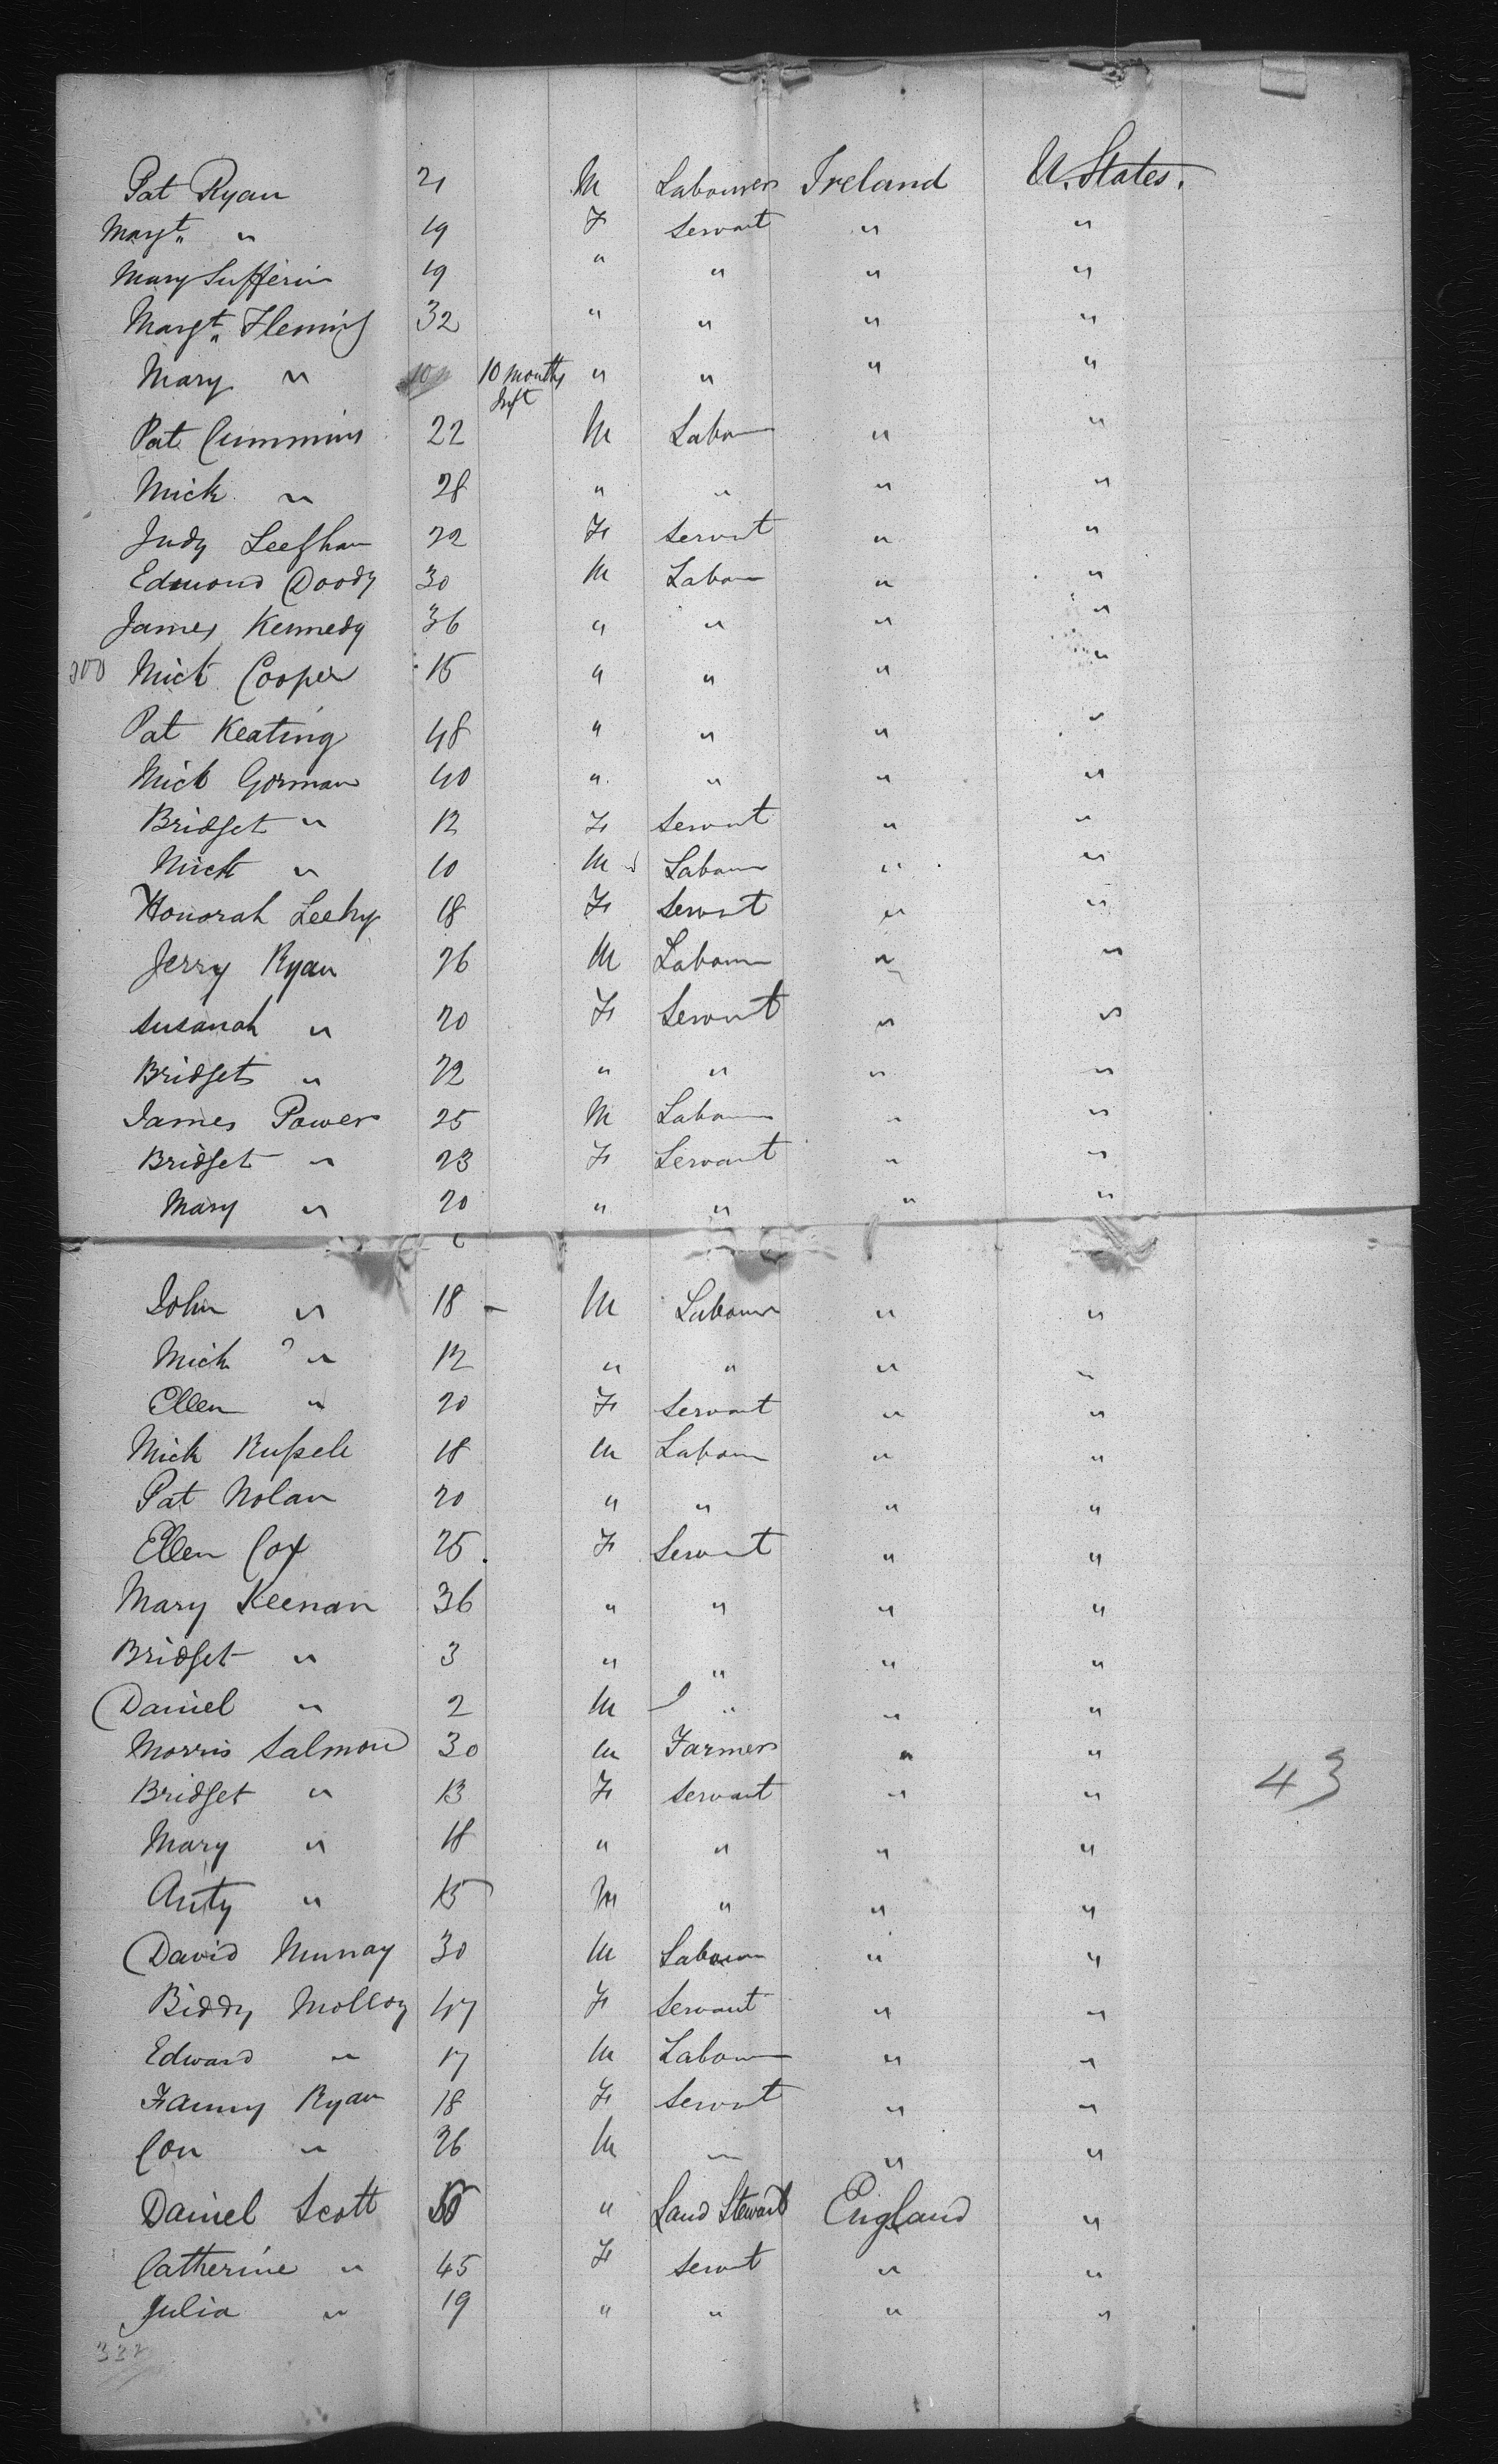 Pat Ryan 21 M Labourer Ireland U. States.
Margt " 19 F Servant " "
Mary Sufferin 19 " " " "
Margt Fleming 32 " " " "
Mary " 10 months Inft " " " "
Pat Cummins 22 M Labour " "
Mick " 28 " " " "
Judy 22 F Servant " "
Edmond Doody 30 M Labour " "
James Kennedy 36 " " " "
300 Mick Cooper 15 " " " "
Pat Keating 48 " " " "
Mick Gorman 40 " " " "
Bridget " 12 F Servant " "
Mick " 10 M Labour " "
Honorah Leehy 18 F Servant " "
Jerry Ryan 26 M Labour " "
Susanah " 20 F Servant " "
Bridget " 22 " " " "
James Power 25 M Labour " "
Bridget " 23 F Servant " "
Mary " 20 " " " "
John " 18 M Labour " "
Mick " 12 " " " "
Ellen " 20 F Servant " "
Mick Russell 18 M Labour " "
Pat Nolan 20 " " " "
Ellen Cox 25 F Servant " "
Mary Keenan 36 " " " "
Bridget " 3 " " " "
Daniel " 2 M " " "
Morris Salmon 30 M Farmer " "
Bridget " 13 F Servant " " 43
Mary " 18 " " " "
Anty " 15 M " " "
David Murray 30 M Labour " "
Biddy Molloy 47 F Servant " "
Edward " 17 M Labour " "
Fanny Ryan 18 F Servant " "
Con " 26 M " " "
Daniel Scott " Land Steward England "
Catherine " 45 F Servant " "
Julia " 19 " " " "
332